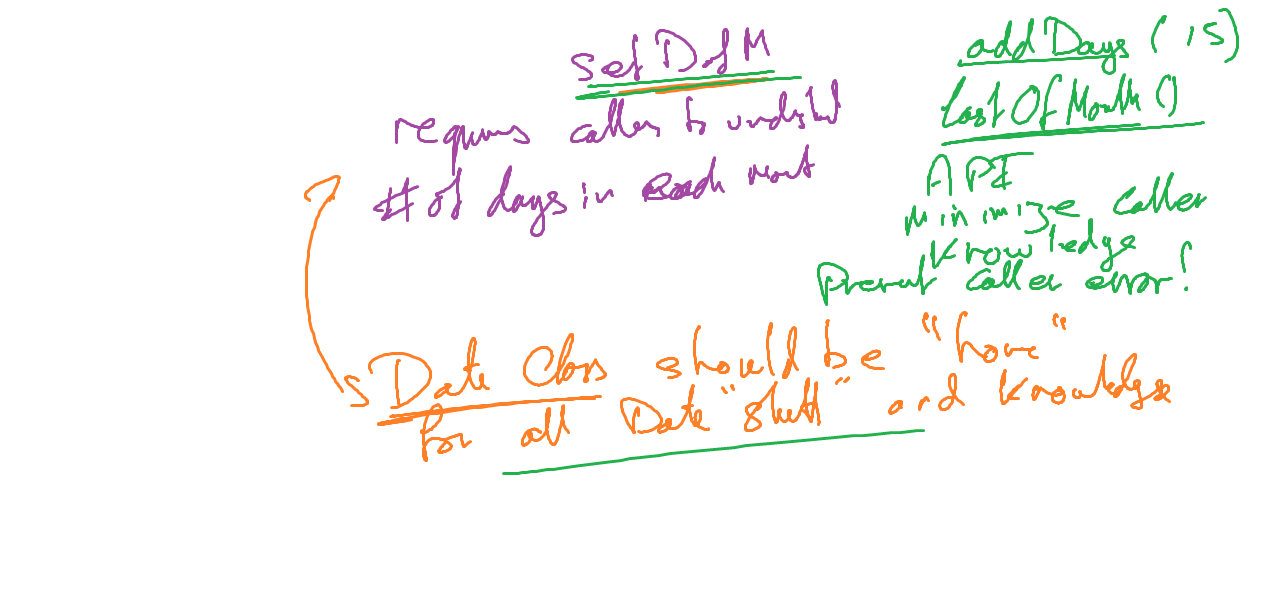 set DofM
requires caller to understand
# of days in each mont
addDays (15)
lastOfMonth ()
API
Minimize caller
knowledge
Prevent caller error!
Date Class should be "home"
for all Date "stuff" and knowledge